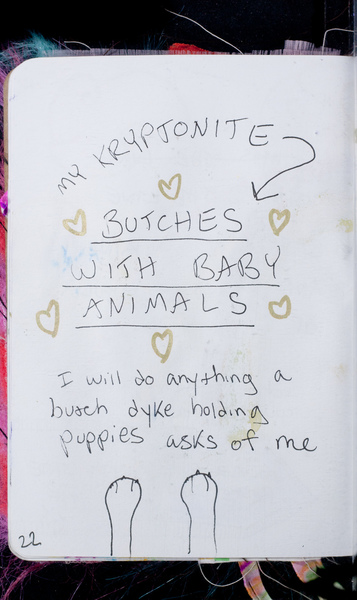 MY KRYPTONITE
BUTCHES
WITH BABY
ANIMALS
I will do anything a
butch dyke holding
puppies asks of me
22